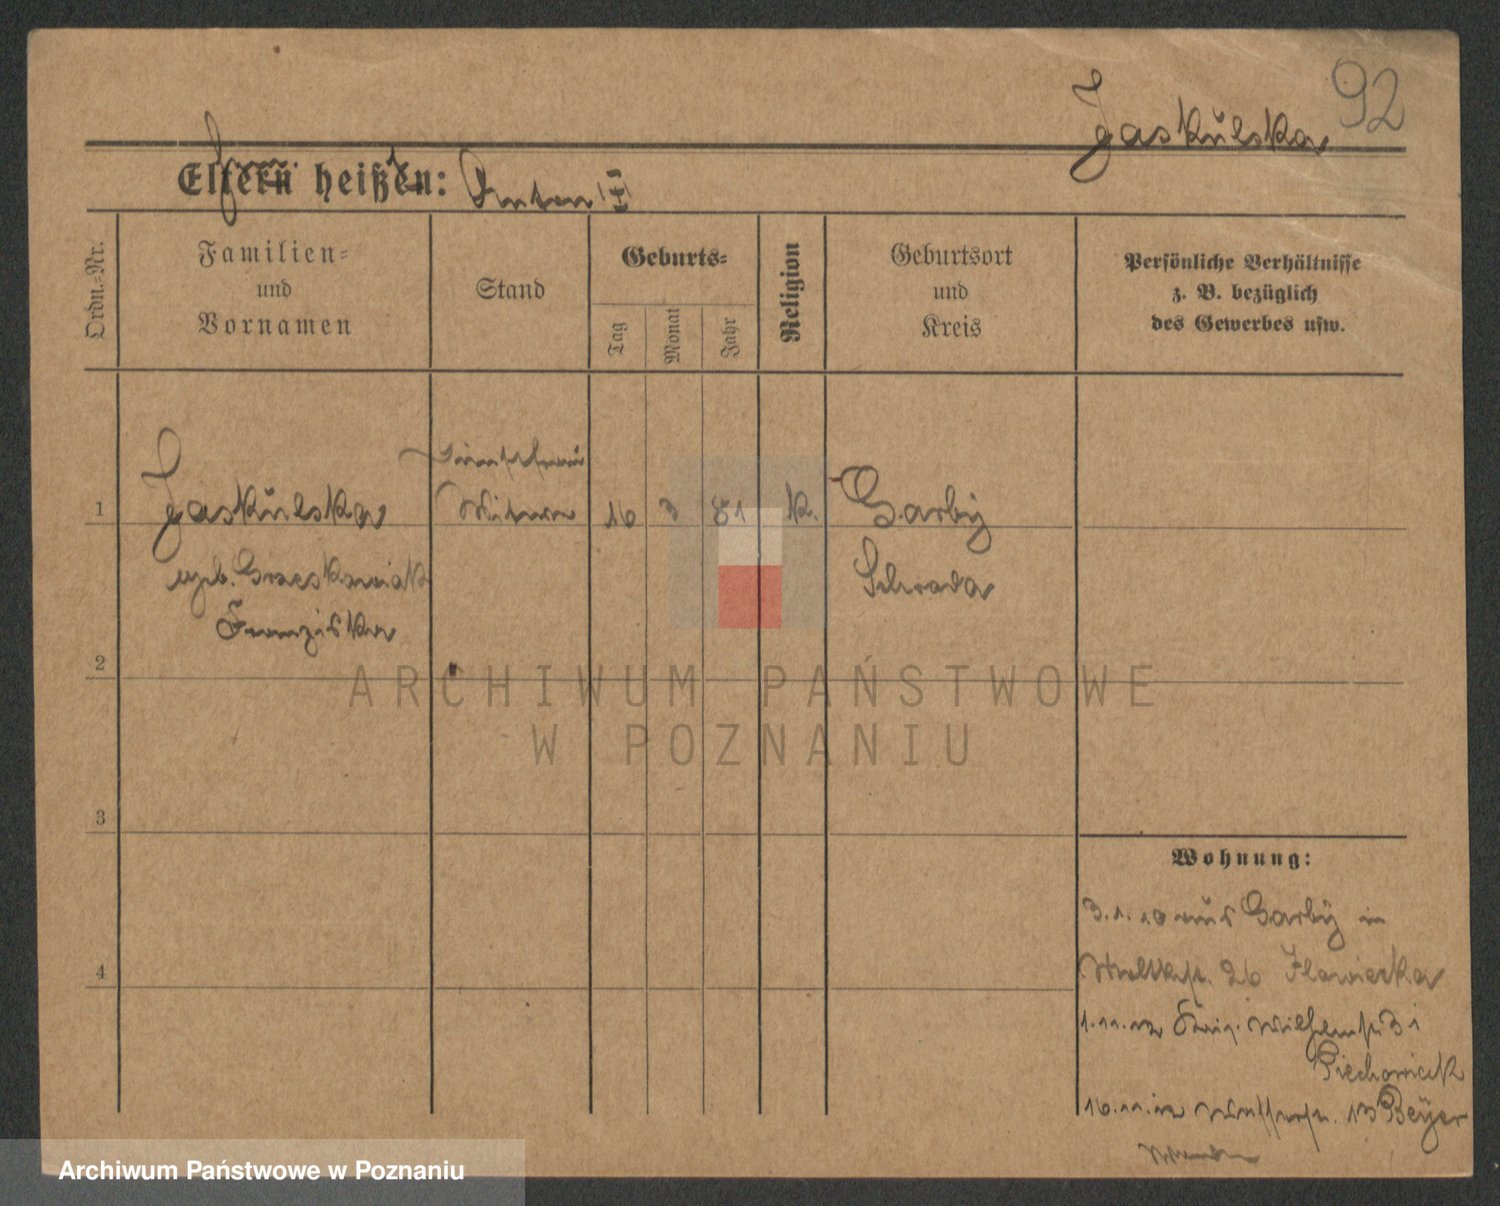 92
Jaskulska
Eltern heißen: Anton
Ordn.-Nr.
Familien-
und
Vornamen
Stand
Geburts-
Tag
Monat
Jahr
Religion
Geburtsort
und
Kreis
Persönliche Verhältnisse
z. B. bezüglich
des Gewerbes usw.
1 Jaskulska Witwe 16 3 81 k. Garby
geb. Graeskowiak Schroda
Franziska
2
3
4
Wohnung:
3.1.10 aus Garby in
Moltkestr. 26 Flawierka
1.11.12 König. Wilhelmstr. 31
Piechowiak
16.11.12 13 Beyer
ARCHIWUM PAŃSTWOWE
W POZNANIU
Archiwum Państwowe w Poznaniu